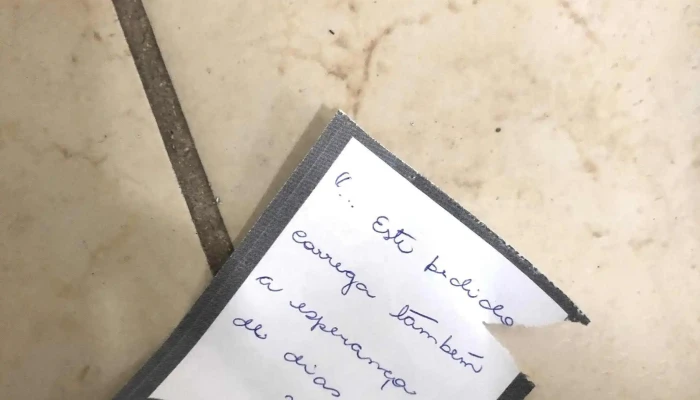 "... Este pedido
carrega também
a esperança
de dias